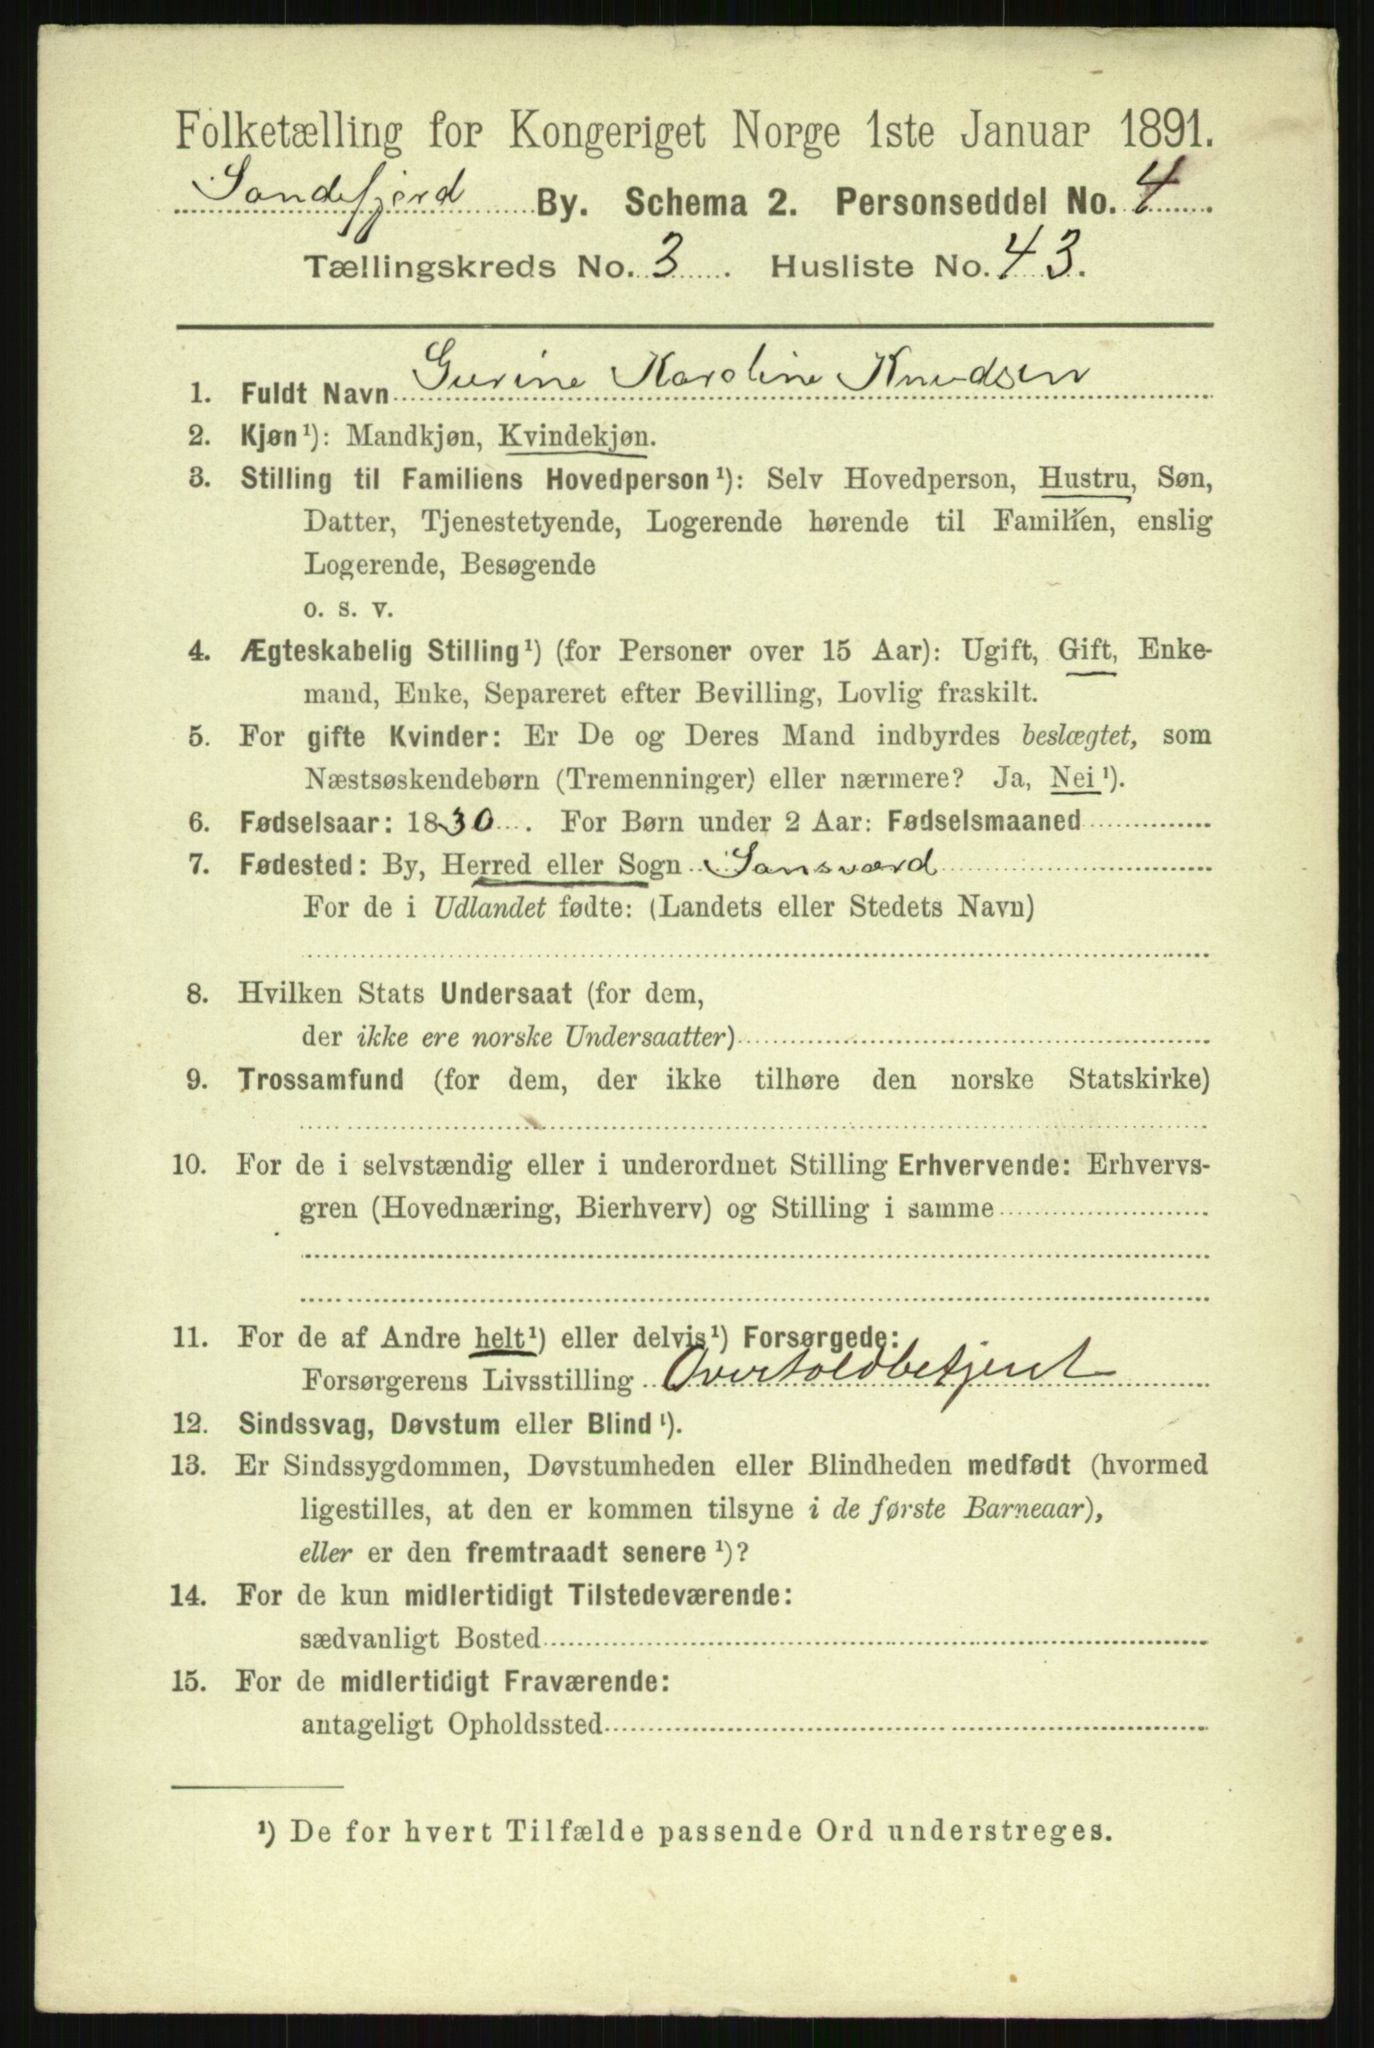 Folketælling for Kongeriget Norge 1ste Januar 1891.
Sandefjord By. Schema 2. Personseddel No. 4.
Tællingskreds No. 3. Husliste No. 43.
1. Fuldt Navn Gurine Karoline Knudsen
2. Kjøn ¹): Mandkjøn, Kvindekjøn.
3. Stilling til Familiens Hovedperson ¹): Selv Hovedperson, Hustru, Søn,
Datter, Tjenestetyende, Logerende hørende til Familien, enslig
Logerende, Besøgende
o. s. v.
4. Ægteskabelig Stilling ¹) (for Personer over 15 Aar): Ugift, Gift, Enke-
mand, Enke, Separeret efter Bevilling, Lovlig fraskilt.
5. For gifte Kvinder: Er De og Deres Mand indbyrdes beslægtet, som
Næstsøskendebørn (Tremenninger) eller nærmere? Ja, Nei ¹).
6. Fødselsaar: 1830. For Børn under 2 Aar: Fødselsmaaned
7. Fødested: By, Herred eller Sogn Sansværd
For de i Udlandet fødte: (Landets eller Stedets Navn)
8. Hvilken Stats Undersaat (for dem,
der ikke ere norske Undersaatter)
9. Trossamfund (for dem, der ikke tilhøre den norske Statskirke)
10. For de i selvstændig eller i underordnet Stilling Erhvervende: Erhvervs-
gren (Hovednæring, Bierhverv) og Stilling i samme
11. For de af Andre helt ¹) eller delvis ¹) Forsørgede:
Forsørgerens Livsstilling Overtoldbetjent
12. Sindssvag, Døvstum eller Blind ¹).
13. Er Sindssygdommen, Døvstumheden eller Blindheden medfødt (hvormed
ligestilles, at den er kommen tilsyne i de første Barneaar),
eller er den fremtraadt senere ¹)?
14. For de kun midlertidigt Tilstedeværende:
sædvanligt Bosted
15. For de midlertidigt Fraværende:
antageligt Opholdssted
¹) De for hvert Tilfælde passende Ord understreges.